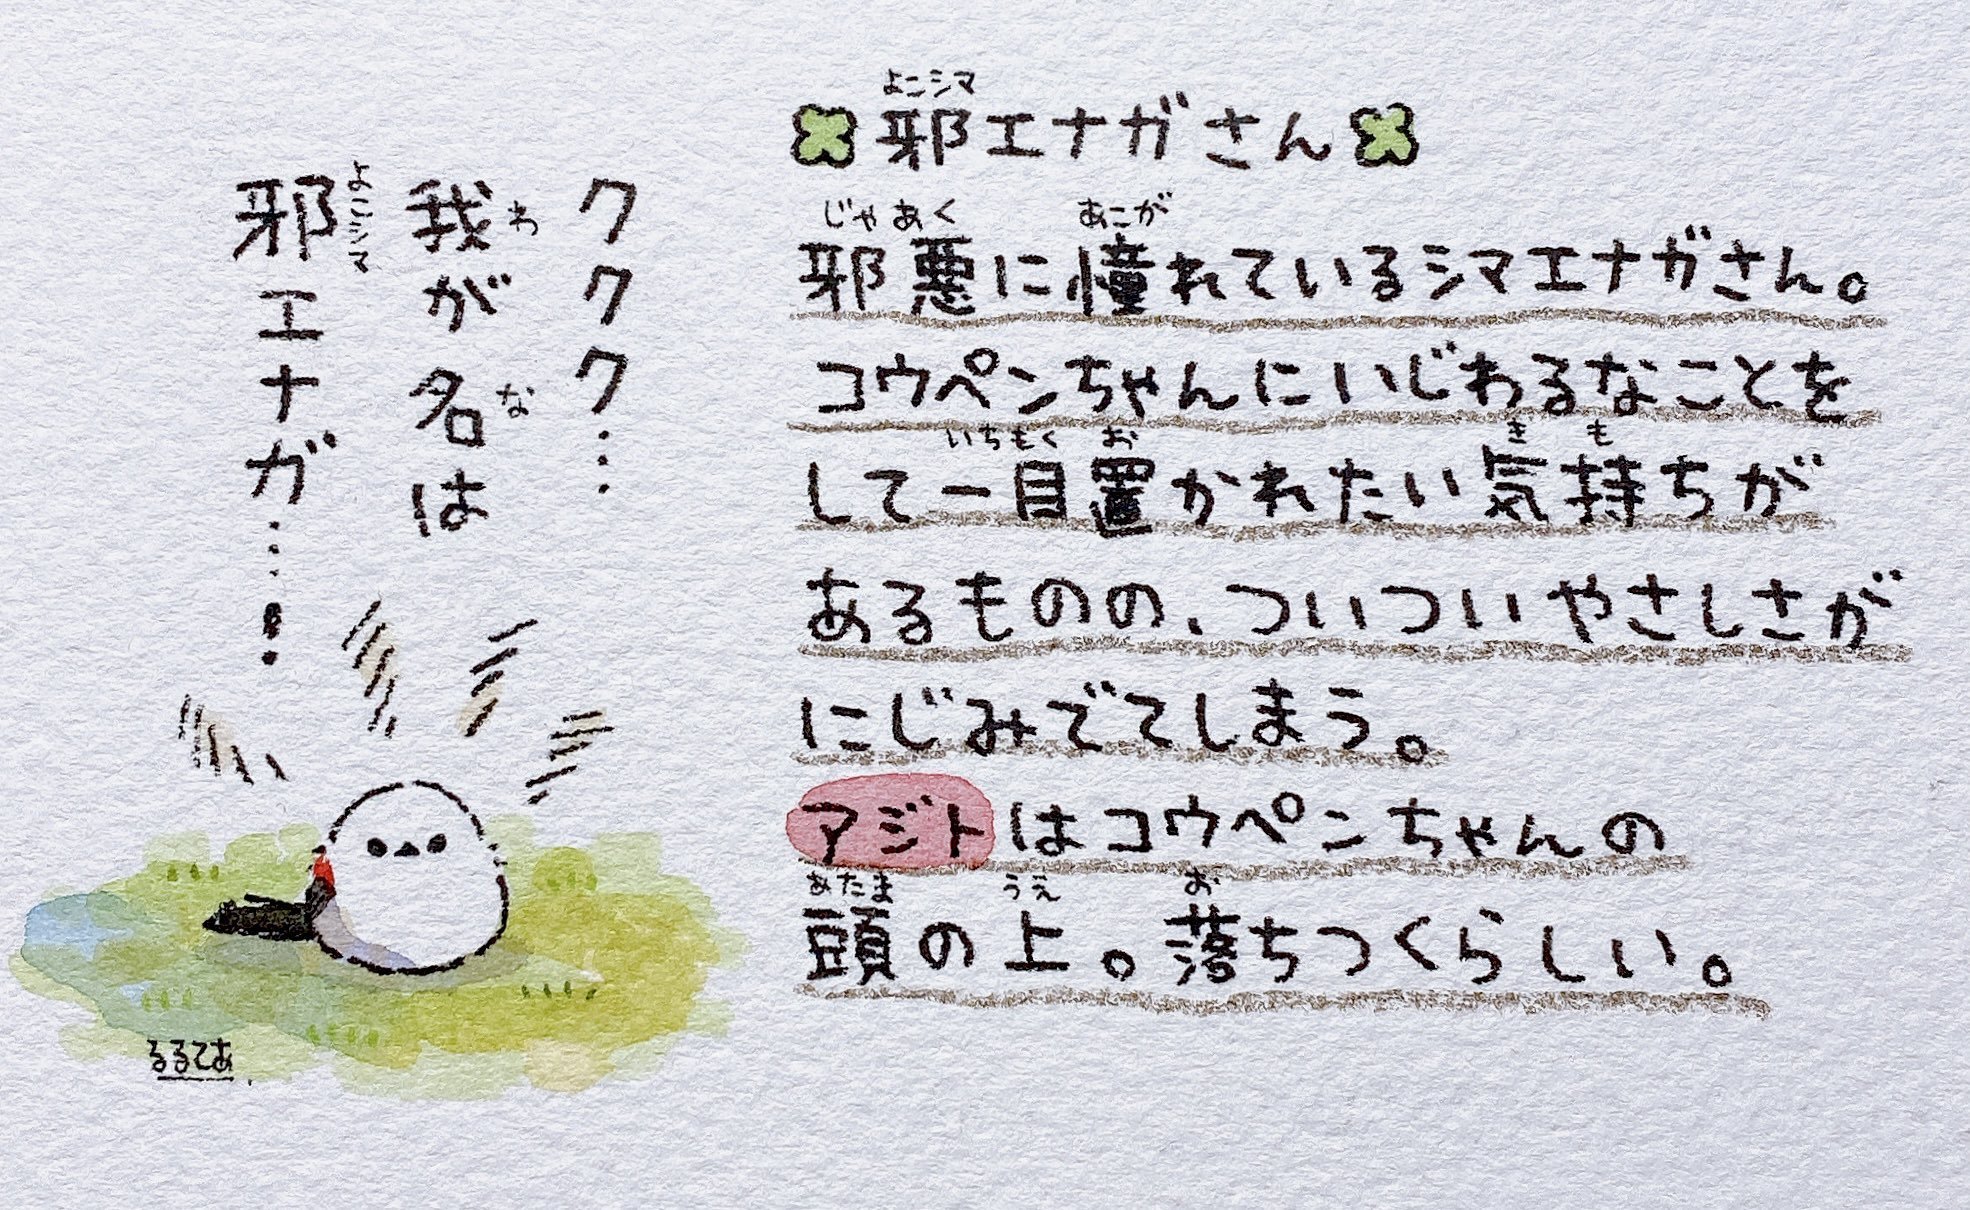 邪エナガさん
よこシマ
邪悪に憧れているシマエナガさん。
じゃあく あこが
コウペンちゃんにいじわるなことを
して一目置かれたい気持ちが
いちもく お き も
あるものの、ついついやさしさが
にじみでてしまう。
アジトはコウペンちゃんの
頭の上。落ちつくらしい。
あたま うえ お
ククク…
我が名は
わ な
邪エナガ……!
よこシマ
るるてあ